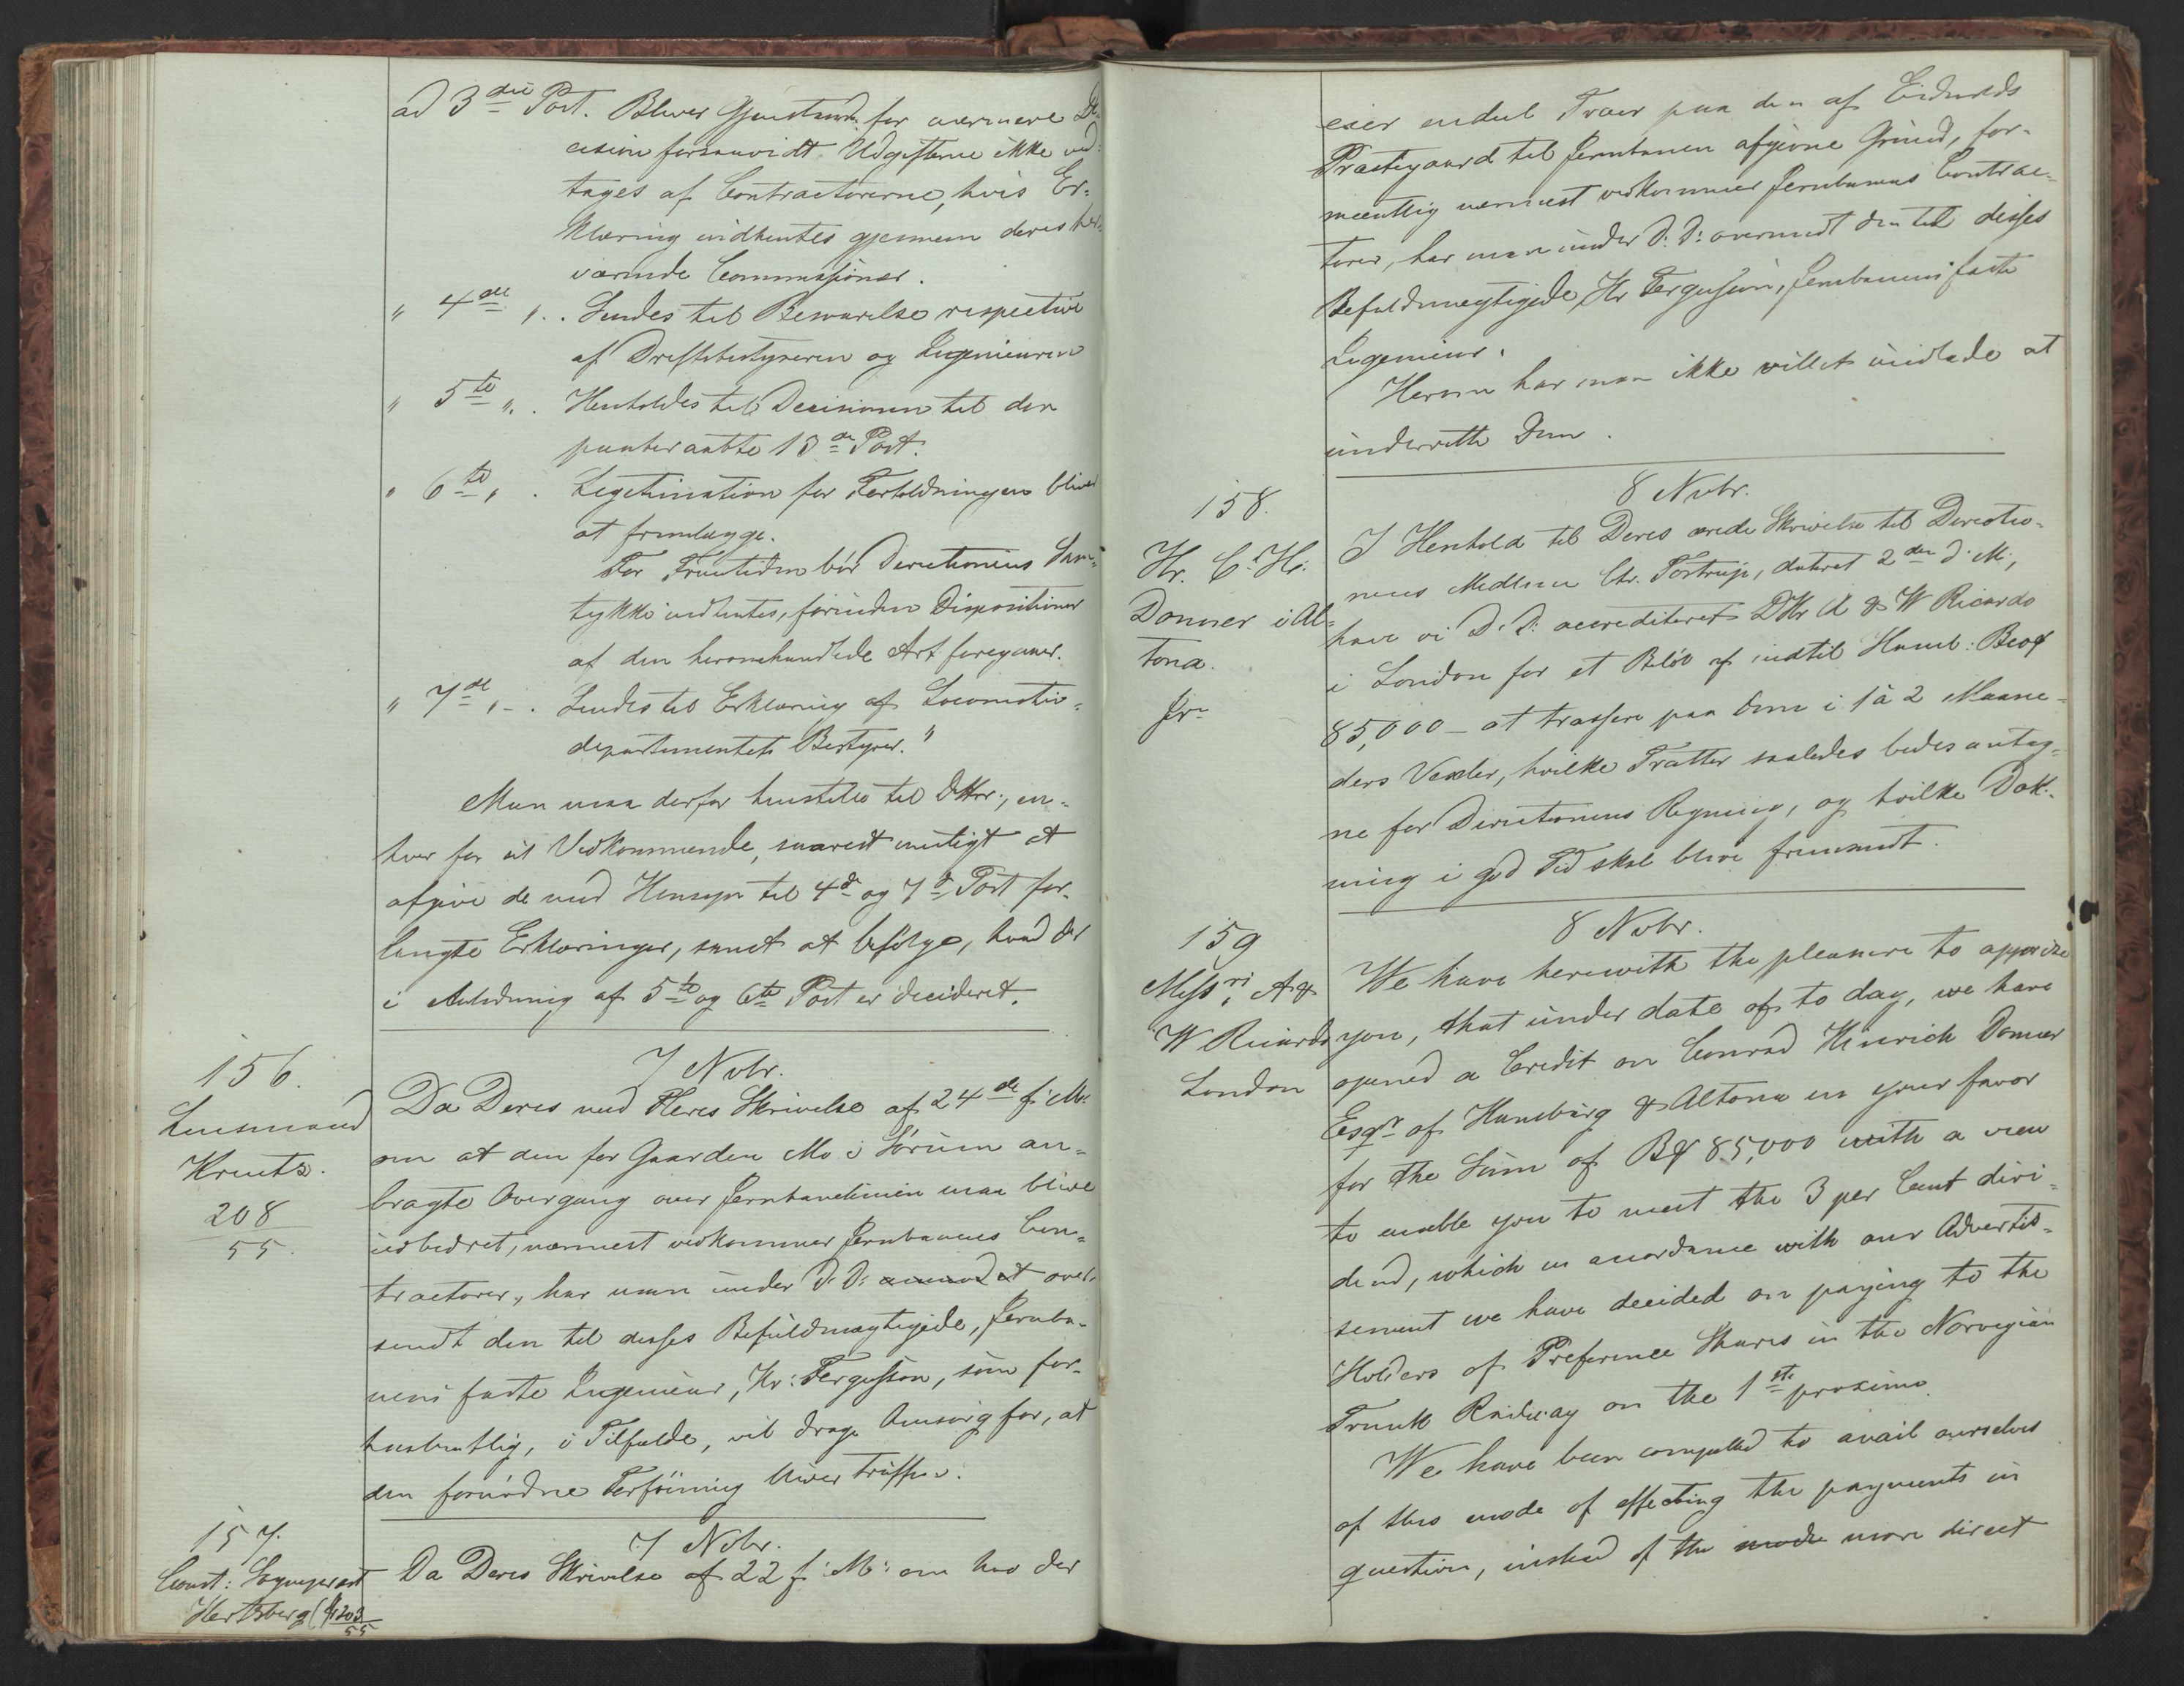 ad 3die Post. Bliver Gjenstand for nærmere De-
cision forsaavidt Udgifterne ikke ved-
tages af Contractorerne, hvis Er-
klæring indhentes gjennem deres her-
værende Commissionær.
" 4de ". Sendes til Besvarelse respective
af Driftsbestyreren og Ingenieuren
" 5te ". Henholdes til Decisionen til den
13de Post.
" 6te " . Legitimation for Fortoldningen bliver
at fremlægge.
For Fremtiden bør Directionens Sam-
tykke indhentes, forinden Dispositioner
af den heromhandlede Art foregaaer.
" 7de " . Sendes til Erklæring af Locomotiv-
departementets Bestyrer."
Man maa derfor henstille til DHrr:, en-
hver for sit Vedkommende, snarest muligt at
afgive de med Hensyn til 4de og 7de Post for-
langte Erklæringer, samt at befølge, hvad der
i Anledning af 5te og 6te Post er decideret.
156.
Lensmand
Kreutz.
208
55.
7 Nvbr.
Da Deres med Fleres Skrivelse af 24de f: M:
om at den for Gaarden Mo i Sørum an-
bragte Overgang over Jernbanelinien maa blive
udbedret, nærmest vedkommer Jernbanens Con-
tractorer, har man under D: D: anmodet over-
sendt den til disses Befuldmægtigede, Jernba-
nens faste Ingenieur, Hr: Fergusson, som for-
haabentlig, i Tilfælde, vil drage Omsorg for, at
den fornødne Forføining bliver truffen.
157.
Const: Sogneprest
Hertzberg (Jr 203
55
7 Nvbr.
Da Deres Skrivelse af 22 f: M: om hvo der
eier endeel Træer paa den af Eidsvolds
Præstegaard til Jernbanen afgivne Grund, for-
meentlig nærmest vedkommer Jernbanens Contrac-
torer, har man under D: D: oversendt den til disses
Befuldmægtigede, Hr Fergusson, Jernbanens faste
Ingenieur.
Herom har man ikke villet undlade at
underrette Dem.
158.
Hr. C. Hr.
Donner i Al-
tona.
8 Nvbr.
I Henhold til Deres ærede Skrivelse til Directio-
nens Medlem Chr. Tostrup, dateret 2den d. M.,
have vi D. D. accrediteret DHr A & W Ricardo
i London for et Beløb af indtil Hamb: Bco
85,000 – at trassere paa Dem i 1 à 2 Maane-
ders Vexler, hvilke Tratter saaledes bedes antag-
ne for Directionens Regning, og hvilke Dæk-
ning i god Tid skal blive fremsendt.
159
Messrs A &
W Ricardo
London
8 Nvbr.
We have herewith the pleasure to apprize
you, that under date of to day, we have
opened a Credit on Conrad Hinrich Donner
Esqr of Hamburg & Altona in your favor
for the Sum of B 85,000 with a view
to enable you to meet the 3 per Cent divi-
dend, which in accordance with our Advertis-
sement we have decided on paying to the
Holders of Preference Shares in the Norwegian
Trunk Railway on the 1ste proximo.
We have been compelled to avail ourselves
of this mode of effecting the payments in
question, instead of the mode more direct